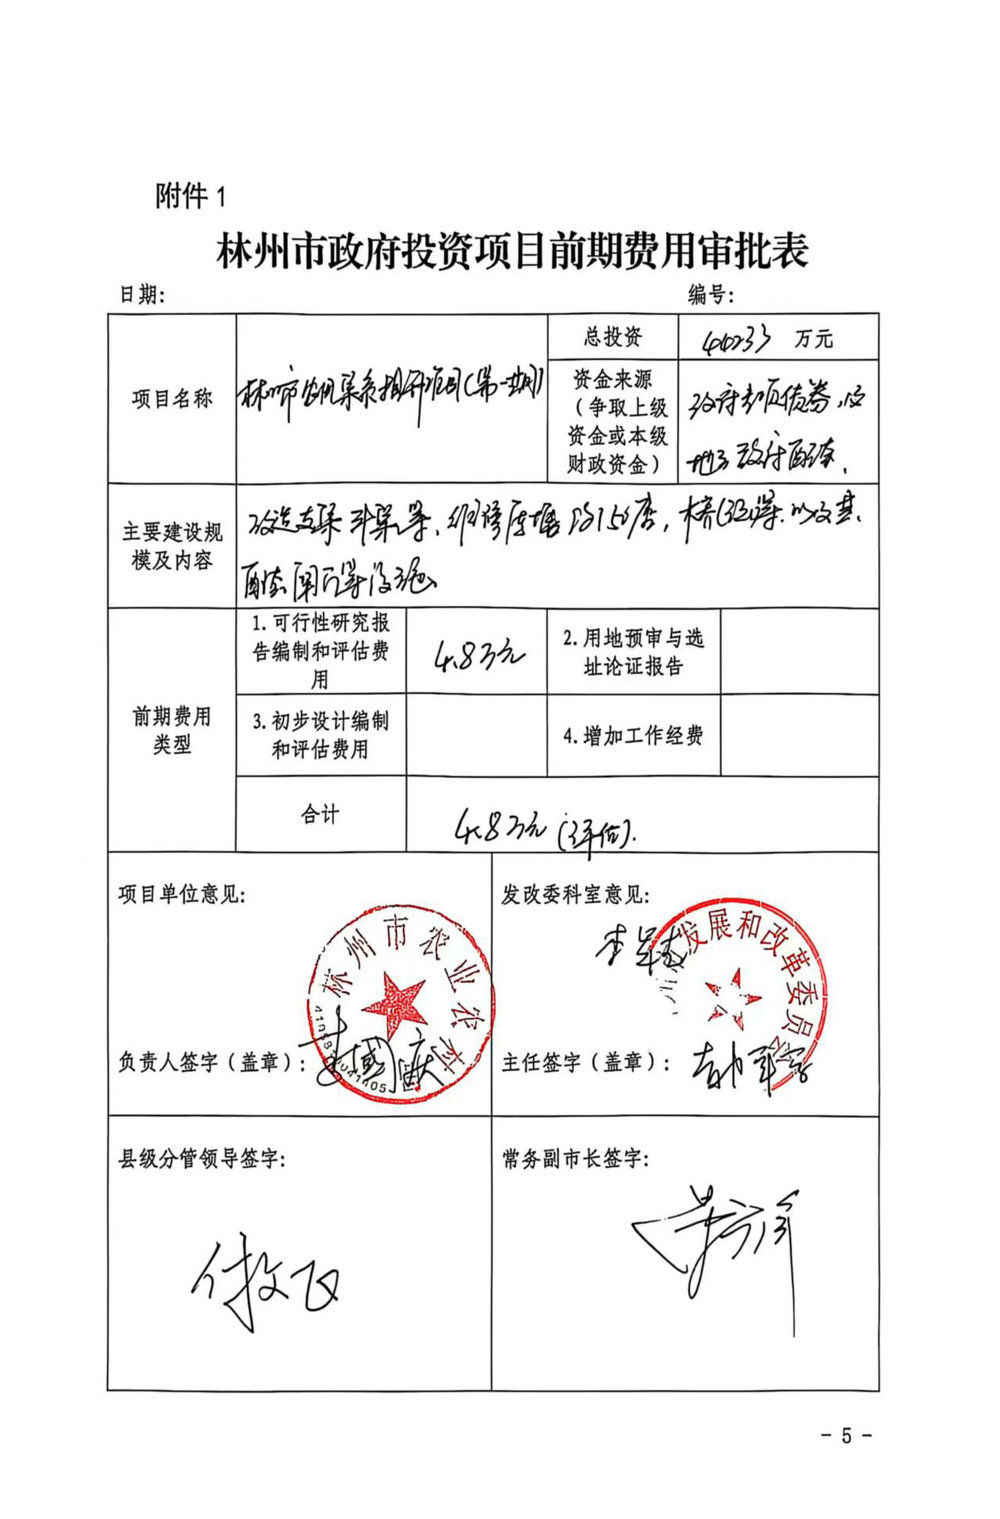 附件 1
林州市政府投资项目前期费用审批表
日期:
编号:
项目名称
林州市
项目(第一期)
总投资
44233 万元
资金来源
(争取上级
资金或本级
财政资金)
政府专项债券,
地方政府配套.
主要建设规
模及内容
改造支渠 斗渠等,维修
配套闸门等设施
前期费用
类型
1.可行性研究报
告编制和评估费
用
4.8万元
2.用地预审与选
址论证报告
3.初步设计编制
和评估费用
4.增加工作经费
合计
4.8万元(评估).
项目单位意见:
林州市农业农村
负责人签字(盖章):
国庆
发改委科室意见:
发展和改革委员
主任签字(盖章):
县级分管领导签字:
常务副市长签字:
- 5 -